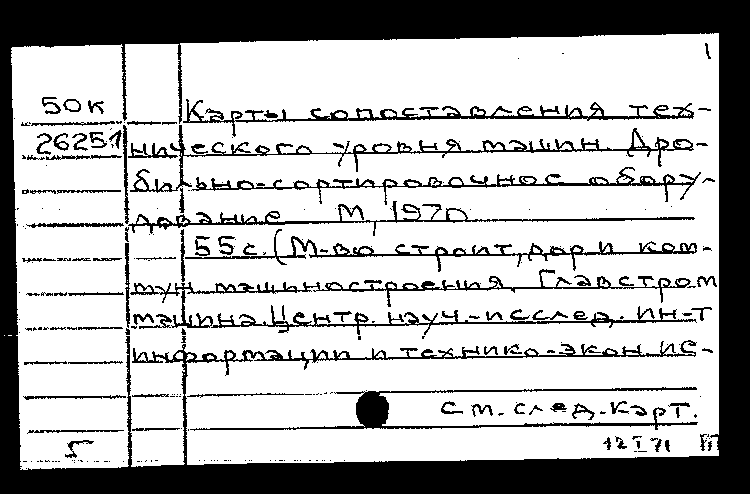 1
50к Карты сопоставления тех-
26251 нического уровня машин. Дро-
бильно-сортировочное обору-
дование М, 1970
55 с. (М-во строит, дор и ком-
мун машиностроения. Главстром
машина. Центр. науч.-исслед. ин-т
информации и технико-экон ис-
см. след. карт.
5 12 I 71 III